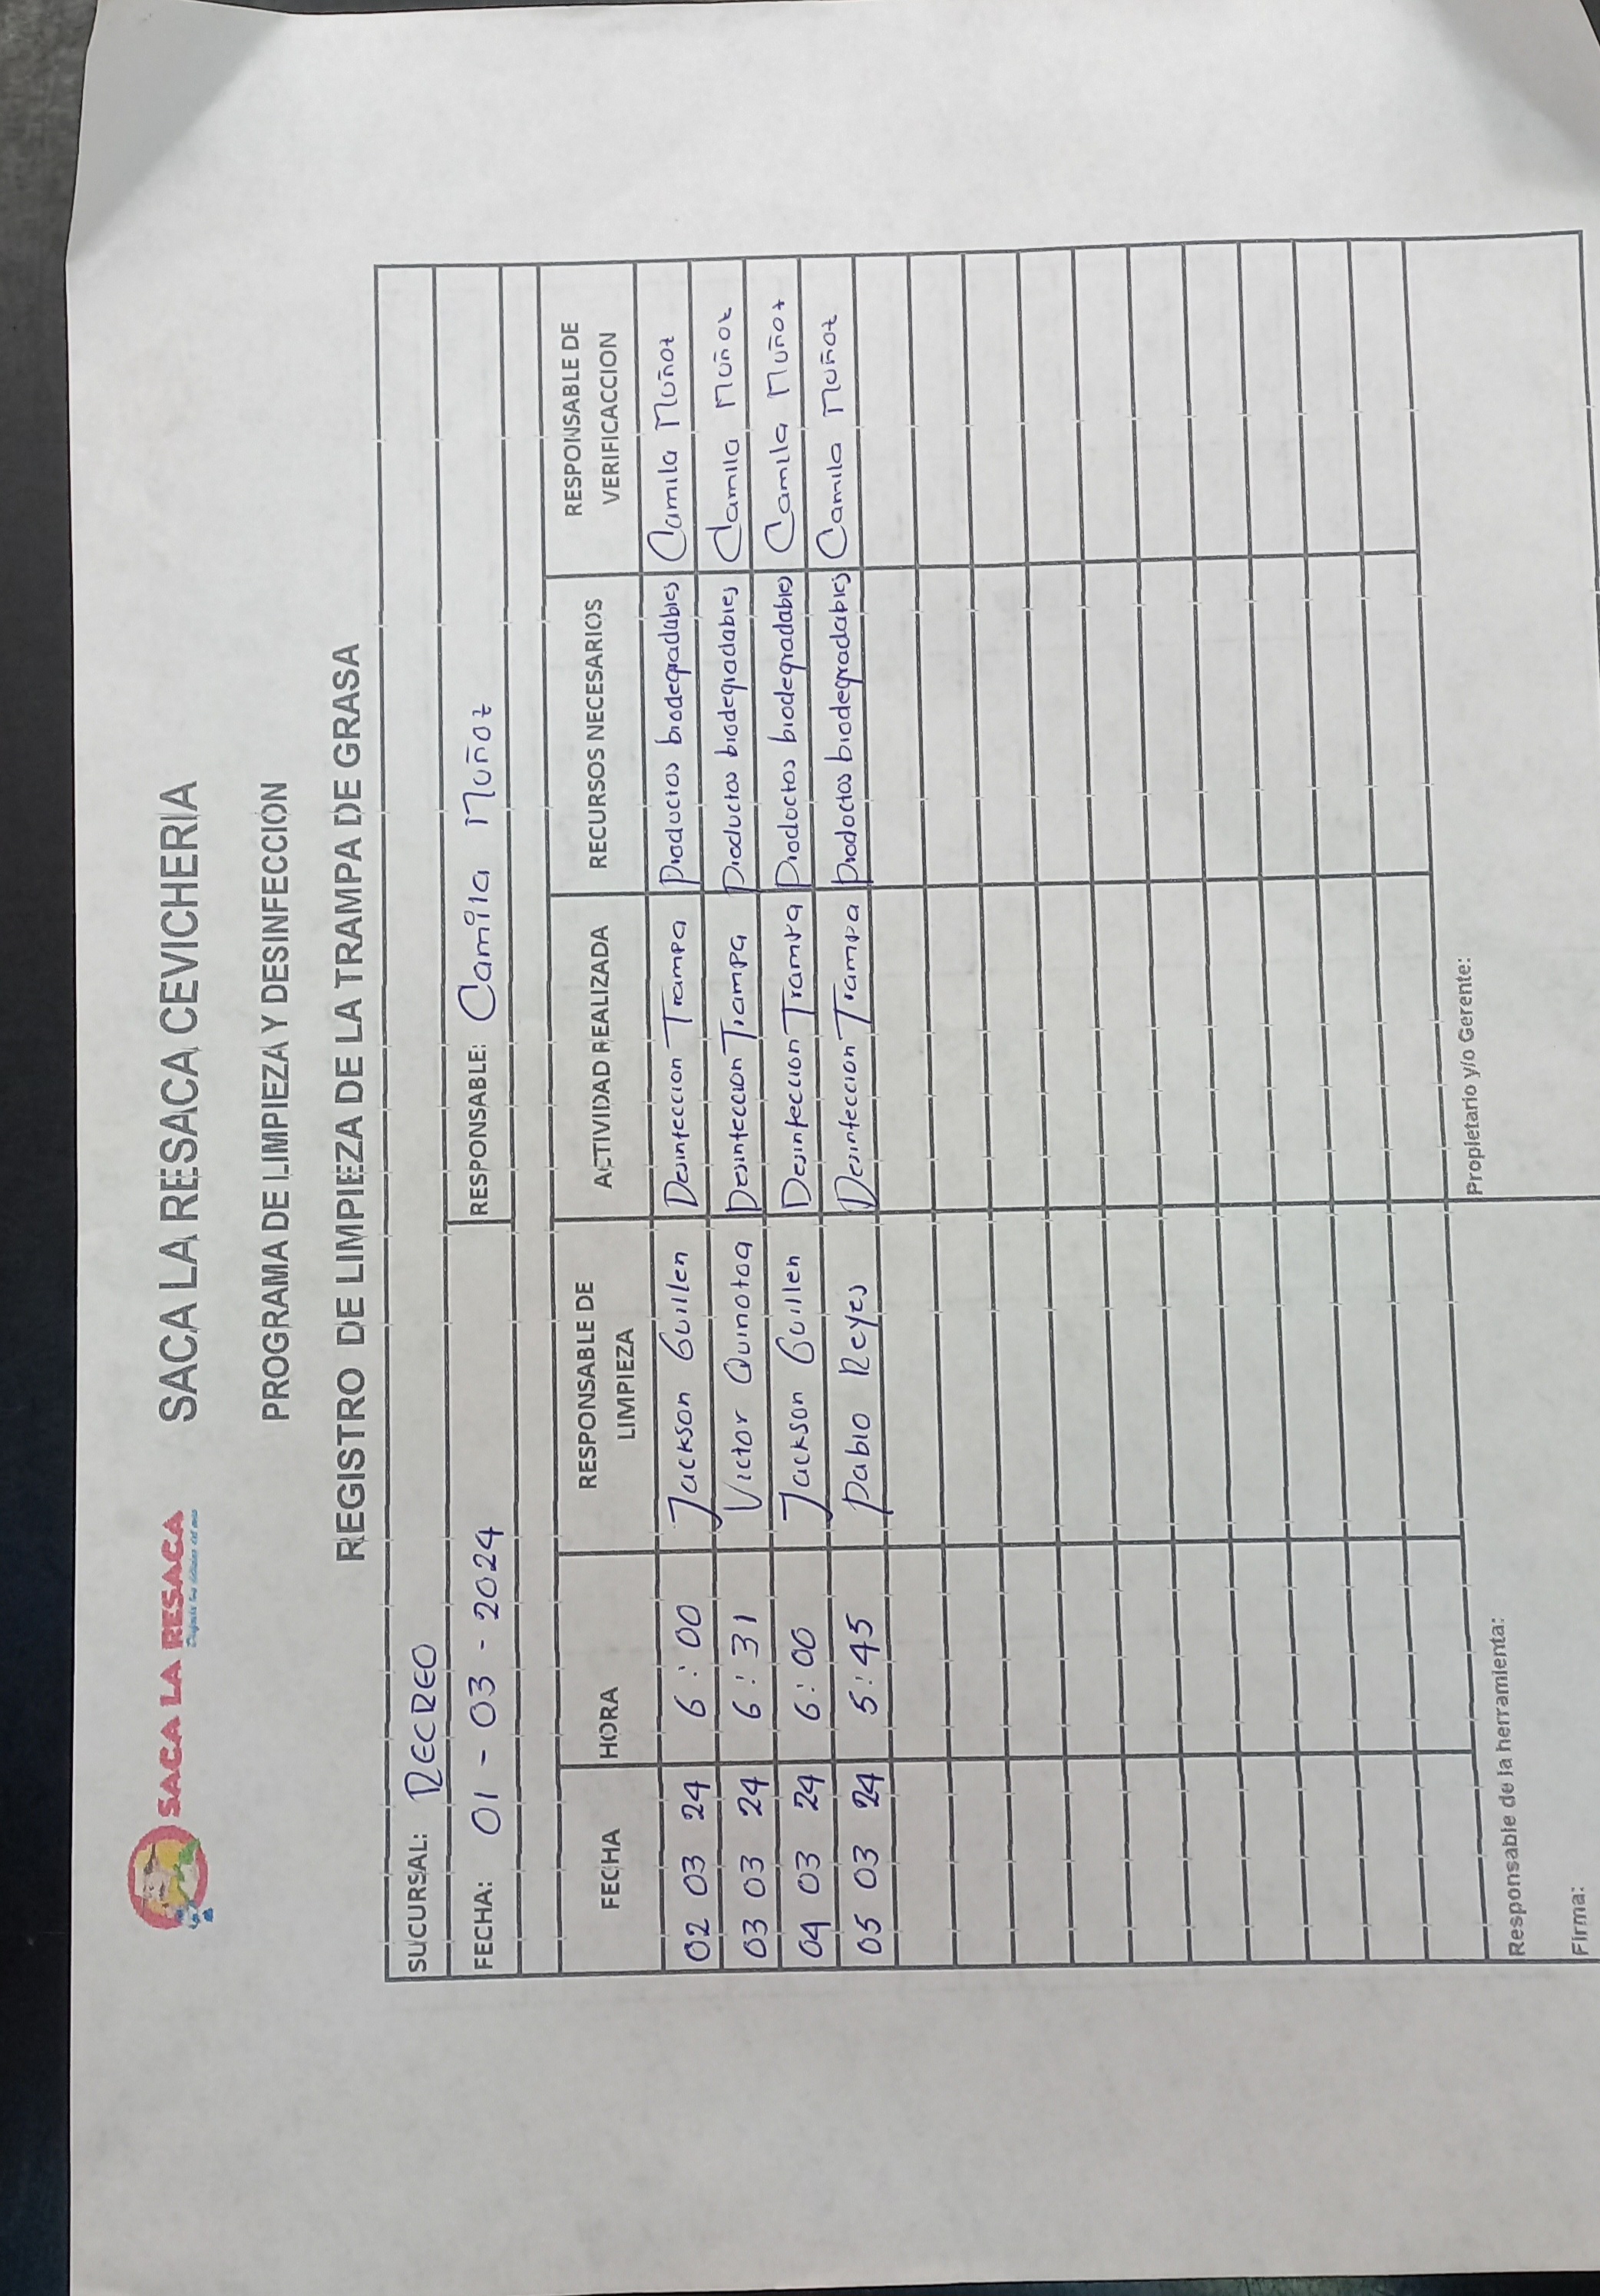 SACA LA RESACA SACA LA RESACA CEVICHERIA
PROGRAMA DE LIMPIEZA Y DESINFECCION
REGISTRO DE LIMPIEZA DE LA TRAMPA DE GRASA
SUCURSAL: RECREO
FECHA: 01 - 03 - 2024 RESPONSABLE: Camila Muñoz
FECHA HORA RESPONSABLE DE LIMPIEZA ACTIVIDAD REALIZADA RECURSOS NECESARIOS RESPONSABLE DE VERIFICACCION
02 03 24 6:00 Jackson Guillen Desinfeccion Trampa Productos biodegradables Camila Muñoz
03 03 24 6:31 Victor Quinotoa Desinfeccion Trampa Productos biodegradables Camila Muñoz
04 03 24 6:00 Jackson Guillen Desinfeccion Trampa Productos biodegradables Camila Muñoz
05 03 24 5:45 Pablo Reyes Desinfeccion Trampa productos biodegradables Camila Muñoz
Responsable de la herramienta: Propietario y/o Gerente:
Firma: